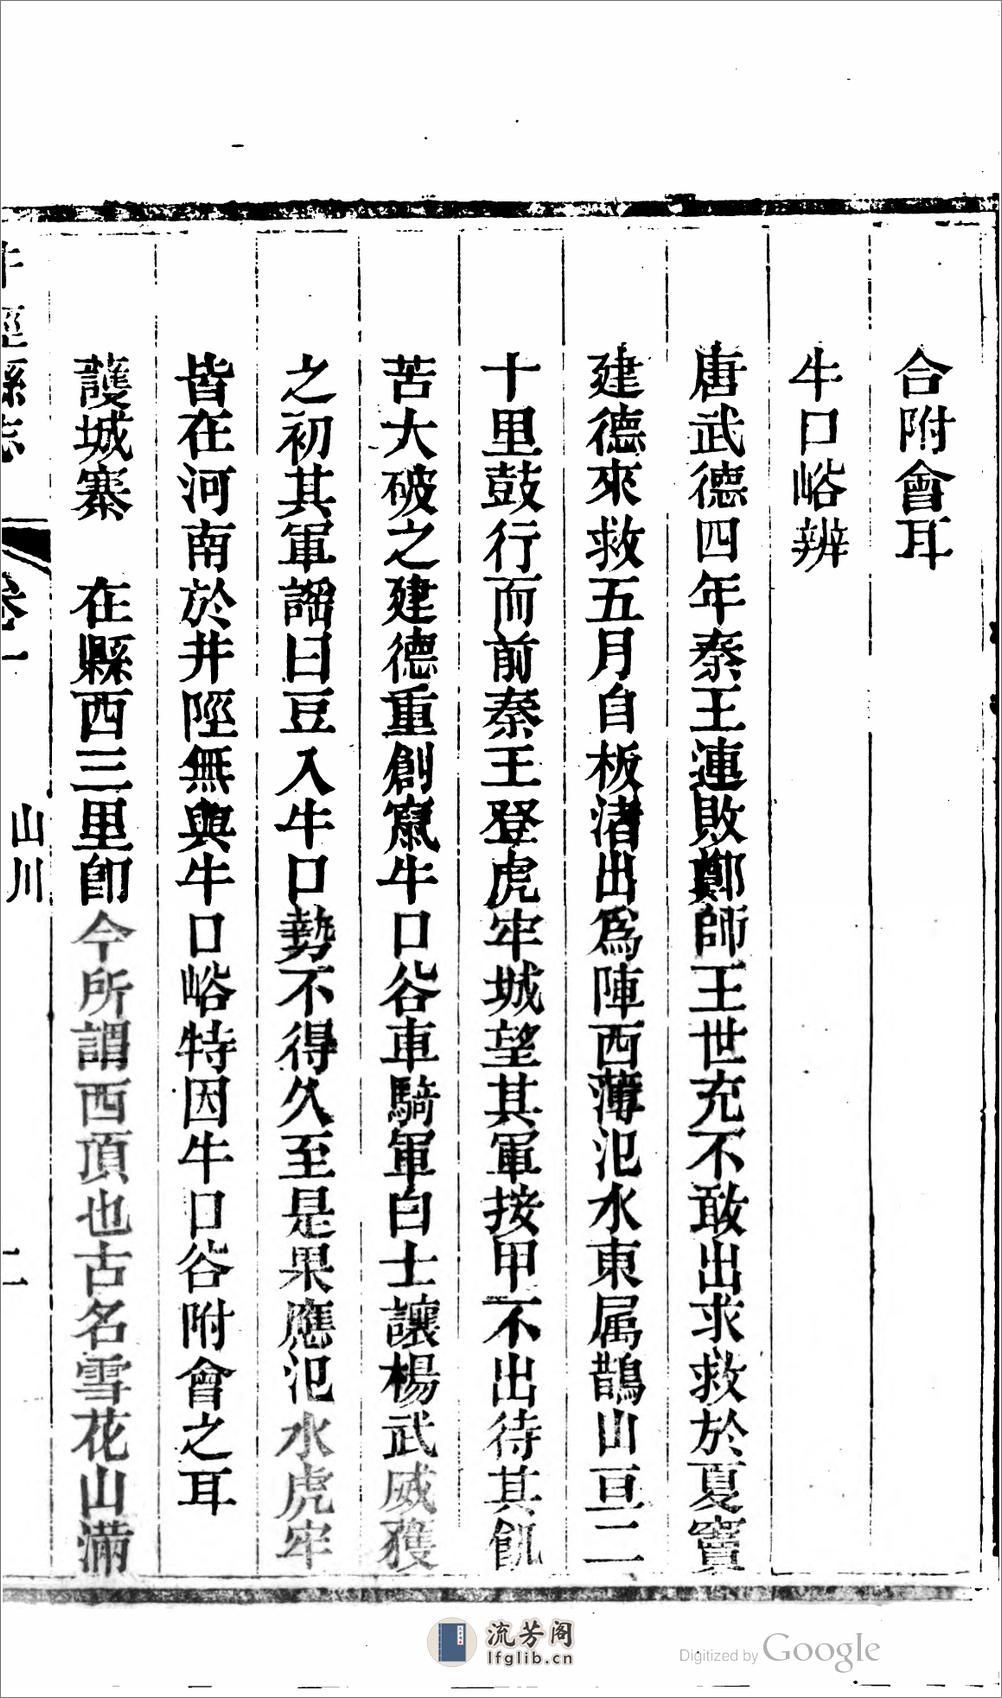 合附會耳
牛口峪辨
唐武德四年秦王連敗鄭師王世充不敢出求救於夏竇
建德來救五月自板渚出爲陣西薄汜水東属鵲山亘二
十里鼓行而前秦王登虎牢城望其軍接甲不出待其飢
苦大破之建德重創竄牛口谷車騎軍白士讓楊武威獲
之初其軍謡曰豆入牛口勢不得久至是果應汜水虎牢
皆在河南於井陘無與牛口峪特因牛口谷附會之耳
護城寨　在縣西三里卽今所謂西頂也古名雪花山滿
井陘縣志
卷一
山川
二
流芳阁
lfglib.cn
Digitized by Google